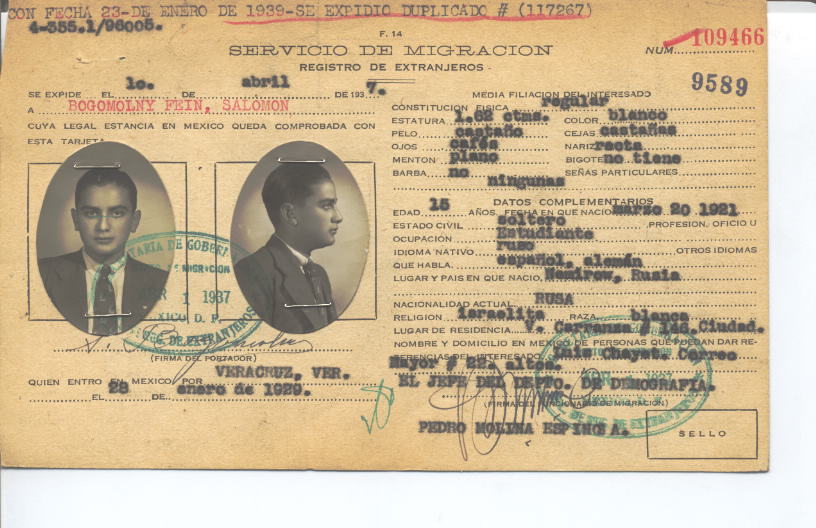 CON FECHA 23-DE ENERO DE 1939-SE EXPIDIO DUPLICADO # (117267)
4-355.1/96005.
F. 14
SERVICIO DE MIGRACION
REGISTRO DE EXTRANJEROS
NUM. 109466
9589
SE EXPIDE EL 1o. DE abril DE 1937.
A BOGOMOLNY FEIN, SALOMON
CUYA LEGAL ESTANCIA EN MEXICO QUEDA COMPROBADA CON
ESTA TARJETA
(FIRMA DEL PORTADOR)
QUIEN ENTRO EN MEXICO POR VERACRUZ, VER.
EL 28 DE enero de 1929.
MEDIA FILIACION DEL INTERESADO
CONSTITUCION FISICA regular
ESTATURA 1.62 ctms. COLOR blanco
PELO castaño CEJAS castañas
OJOS cafés NARIZ recta
MENTON plano BIGOTE no tiene
BARBA no SEÑAS PARTICULARES
ningunas
DATOS COMPLEMENTARIOS
EDAD 15 AÑOS. FECHA EN QUE NACIO marzo 20 1921
ESTADO CIVIL soltero PROFESION, OFICIO U
OCUPACION Estudiante
IDIOMA NATIVO ruso OTROS IDIOMAS
QUE HABLA español, alemán
LUGAR Y PAIS EN QUE NACIO Nemirow, Rusia
NACIONALIDAD ACTUAL RUSA
RELIGION israelita RAZA blanca
LUGAR DE RESIDENCIA V. Carranza # 146. Ciudad.
NOMBRE Y DOMICILIO EN MEXICO DE PERSONAS QUE PUEDAN DAR RE-
FERENCIAS DEL INTERESADO Luis Chayat. Correo
Mayor # 22, altos.
EL JEFE DEL DEPTO. DE DEMOGRAFIA.
(FIRMA DEL FUNCIONARIO DE MIGRACION)
PEDRO MOLINA ESPINOSA.
SELLO
1 1937
MEXICO D. F.
DE EXTRANJEROS